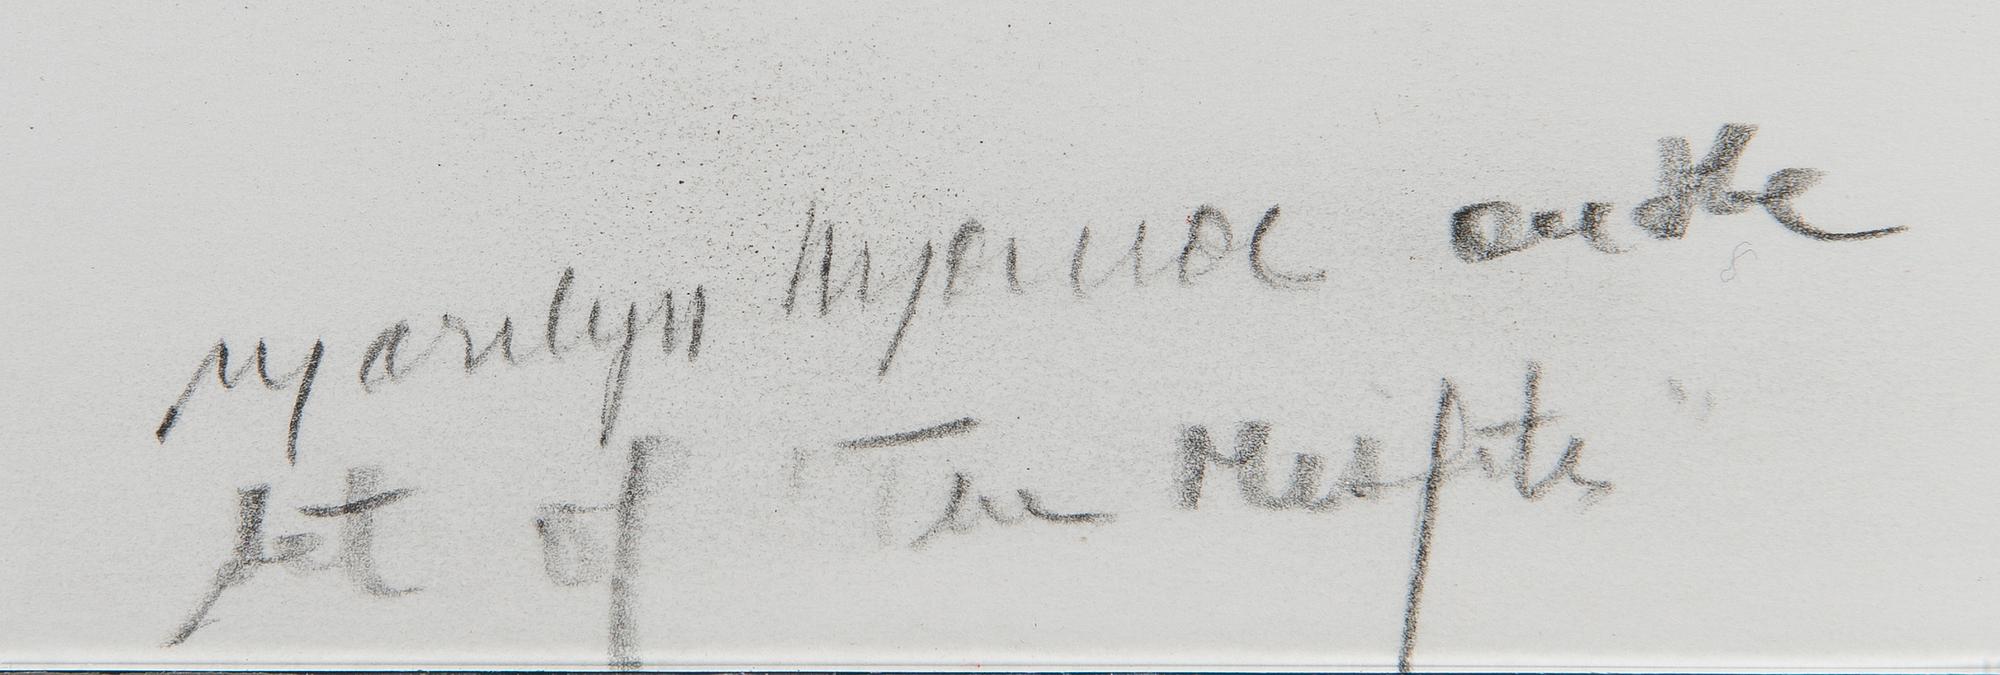 Marilyn Monroe on the
set of "The Misfits"